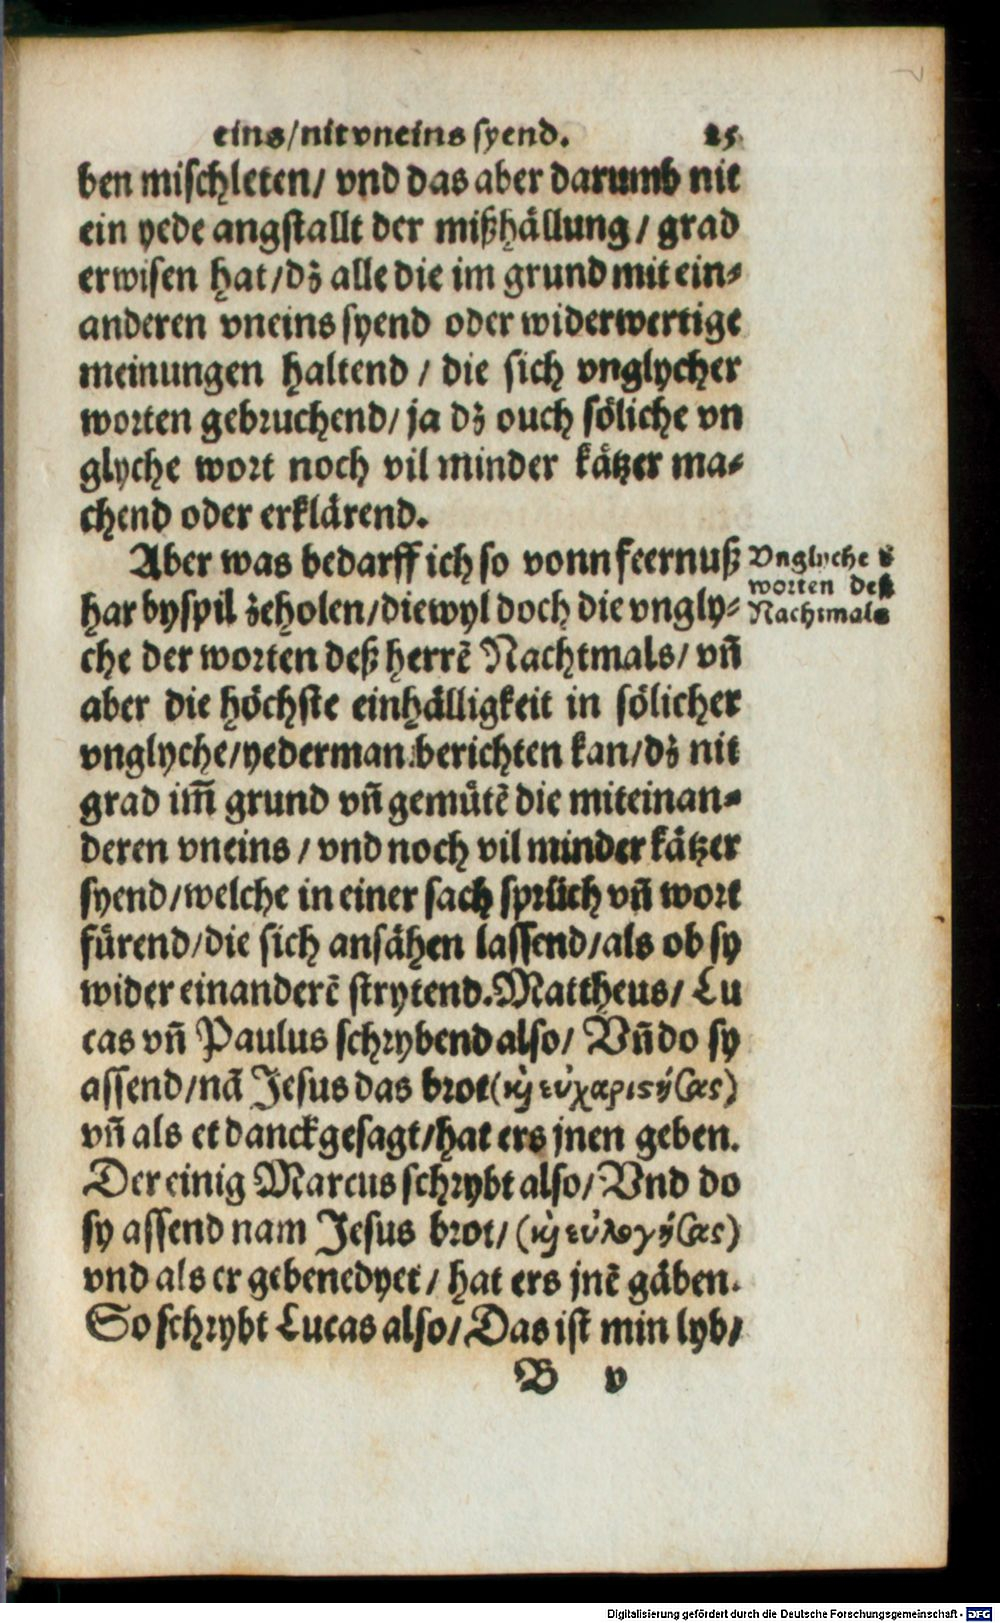 eins/nit vneins syend. 25
ben mischleten/ vnd das aber darumb nit
ein yede angstallt der mißhällung/ grad
erwisen hat/dz alle die im grund mit ein⸗
anderen vneins syend oder widerwertige
meinungen haltend / die sich vnglycher
worten gebruchend/ ja dz ouch söliche vn
glyche wort noch vil minder kätzer ma⸗
chend oder erklärend.
Aber was bedarff ich so vonn feernuß
har byspil zeholen/diewyl doch die vngly⸗
che der worten deß herrē Nachtmals/ vñ
aber die höchste einhälligkeit in sölicher
vnglyche/yederman berichten kan/dz nit
grad im̃ grund vñ gemütē die miteinan⸗
deren vneins / vnd noch vil minder kätzer
syend/welche in einer sach sprüch vñ wort
fürend/die sich ansähen lassend/als ob sy
wider einanderē strytend. Mattheus/ Lu
cas vñ Paulus schrybend also/ Vñ do sy
assend/nā Jesus das brot (ϗ εὐχαριςήσας)
vñ als er danckgesagt/hat ers jnen geben.
Der einig Marcus schrybt also/ Vnd do
sy assend nam Jesus brot/ (ϗ εὐλογήσας)
vnd als er gebenedyet / hat ers jnē gäben.
So schrybt Lucas also/ Das ist min lyb/
B v
Vnglyche ď
worten deß
Nachtmals
Digitalisierung gefördert durch die Deutsche Forschungsgemeinschaft - DFG